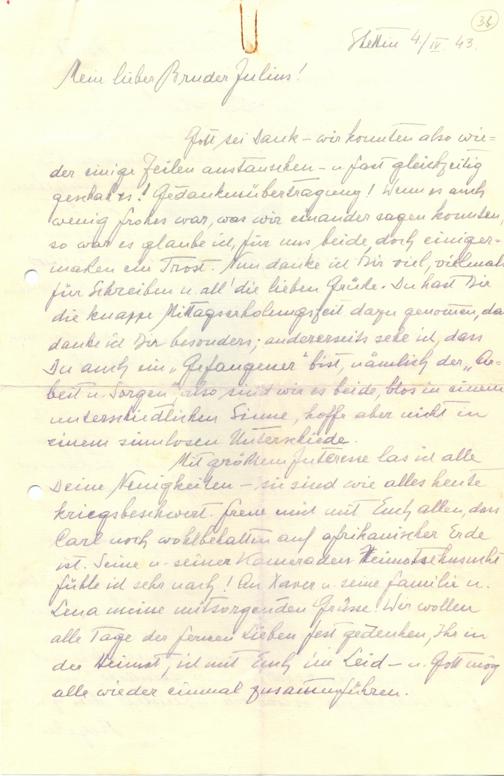 36
Stettin 4/IV 43.
Mein lieber Bruder Julius!
Gott sei Dank – wir konnten also wie=
der einige Zeilen austauschen – u. fast gleichzeitig
geschah es! Gedankenübertragung! Wenn es auch
wenig frohes war, was wir einander sagen konnten,
so war es glaube ich, für uns beide doch einiger-
maßen ein Trost. Nun danke ich Dir viel, vielmals
für Schreiben u. all' die lieben Grüße. Du hast Dir
die knappe Mittagserholungszeit dazu genommen, da
danke ich Dir besonders; andererseits sehe ich, dass
Du auch ein „Gefangener" bist, nämlich der „Ar=
beit u. Sorgen", also sind wir es beide, blos in einem
unterschiedlichen Sinne, hoffe aber nicht in
einem sinnlosen Unterschiede.
Mit größtem Interesse las ich alle
Deine Neuigkeiten – sie sind wie alles heute
kriegsbeschwert. Freue mich mit Euch allen, dass
Carl noch wohlbehalten auf afrikanischer Erde
ist. Seine u. seiner Kameraden Heimatsehnsucht
fühle ich sehr nach! An Xaver u. seine Familie u.
Lena meine mitsorgenden Grüsse. Wir wollen
alle Tage der fernen Lieben fest gedenken, Ihr in
der Heimat, ich mit Euch im Leid – u. Gott mög
alle wieder einmal zusammenführen.